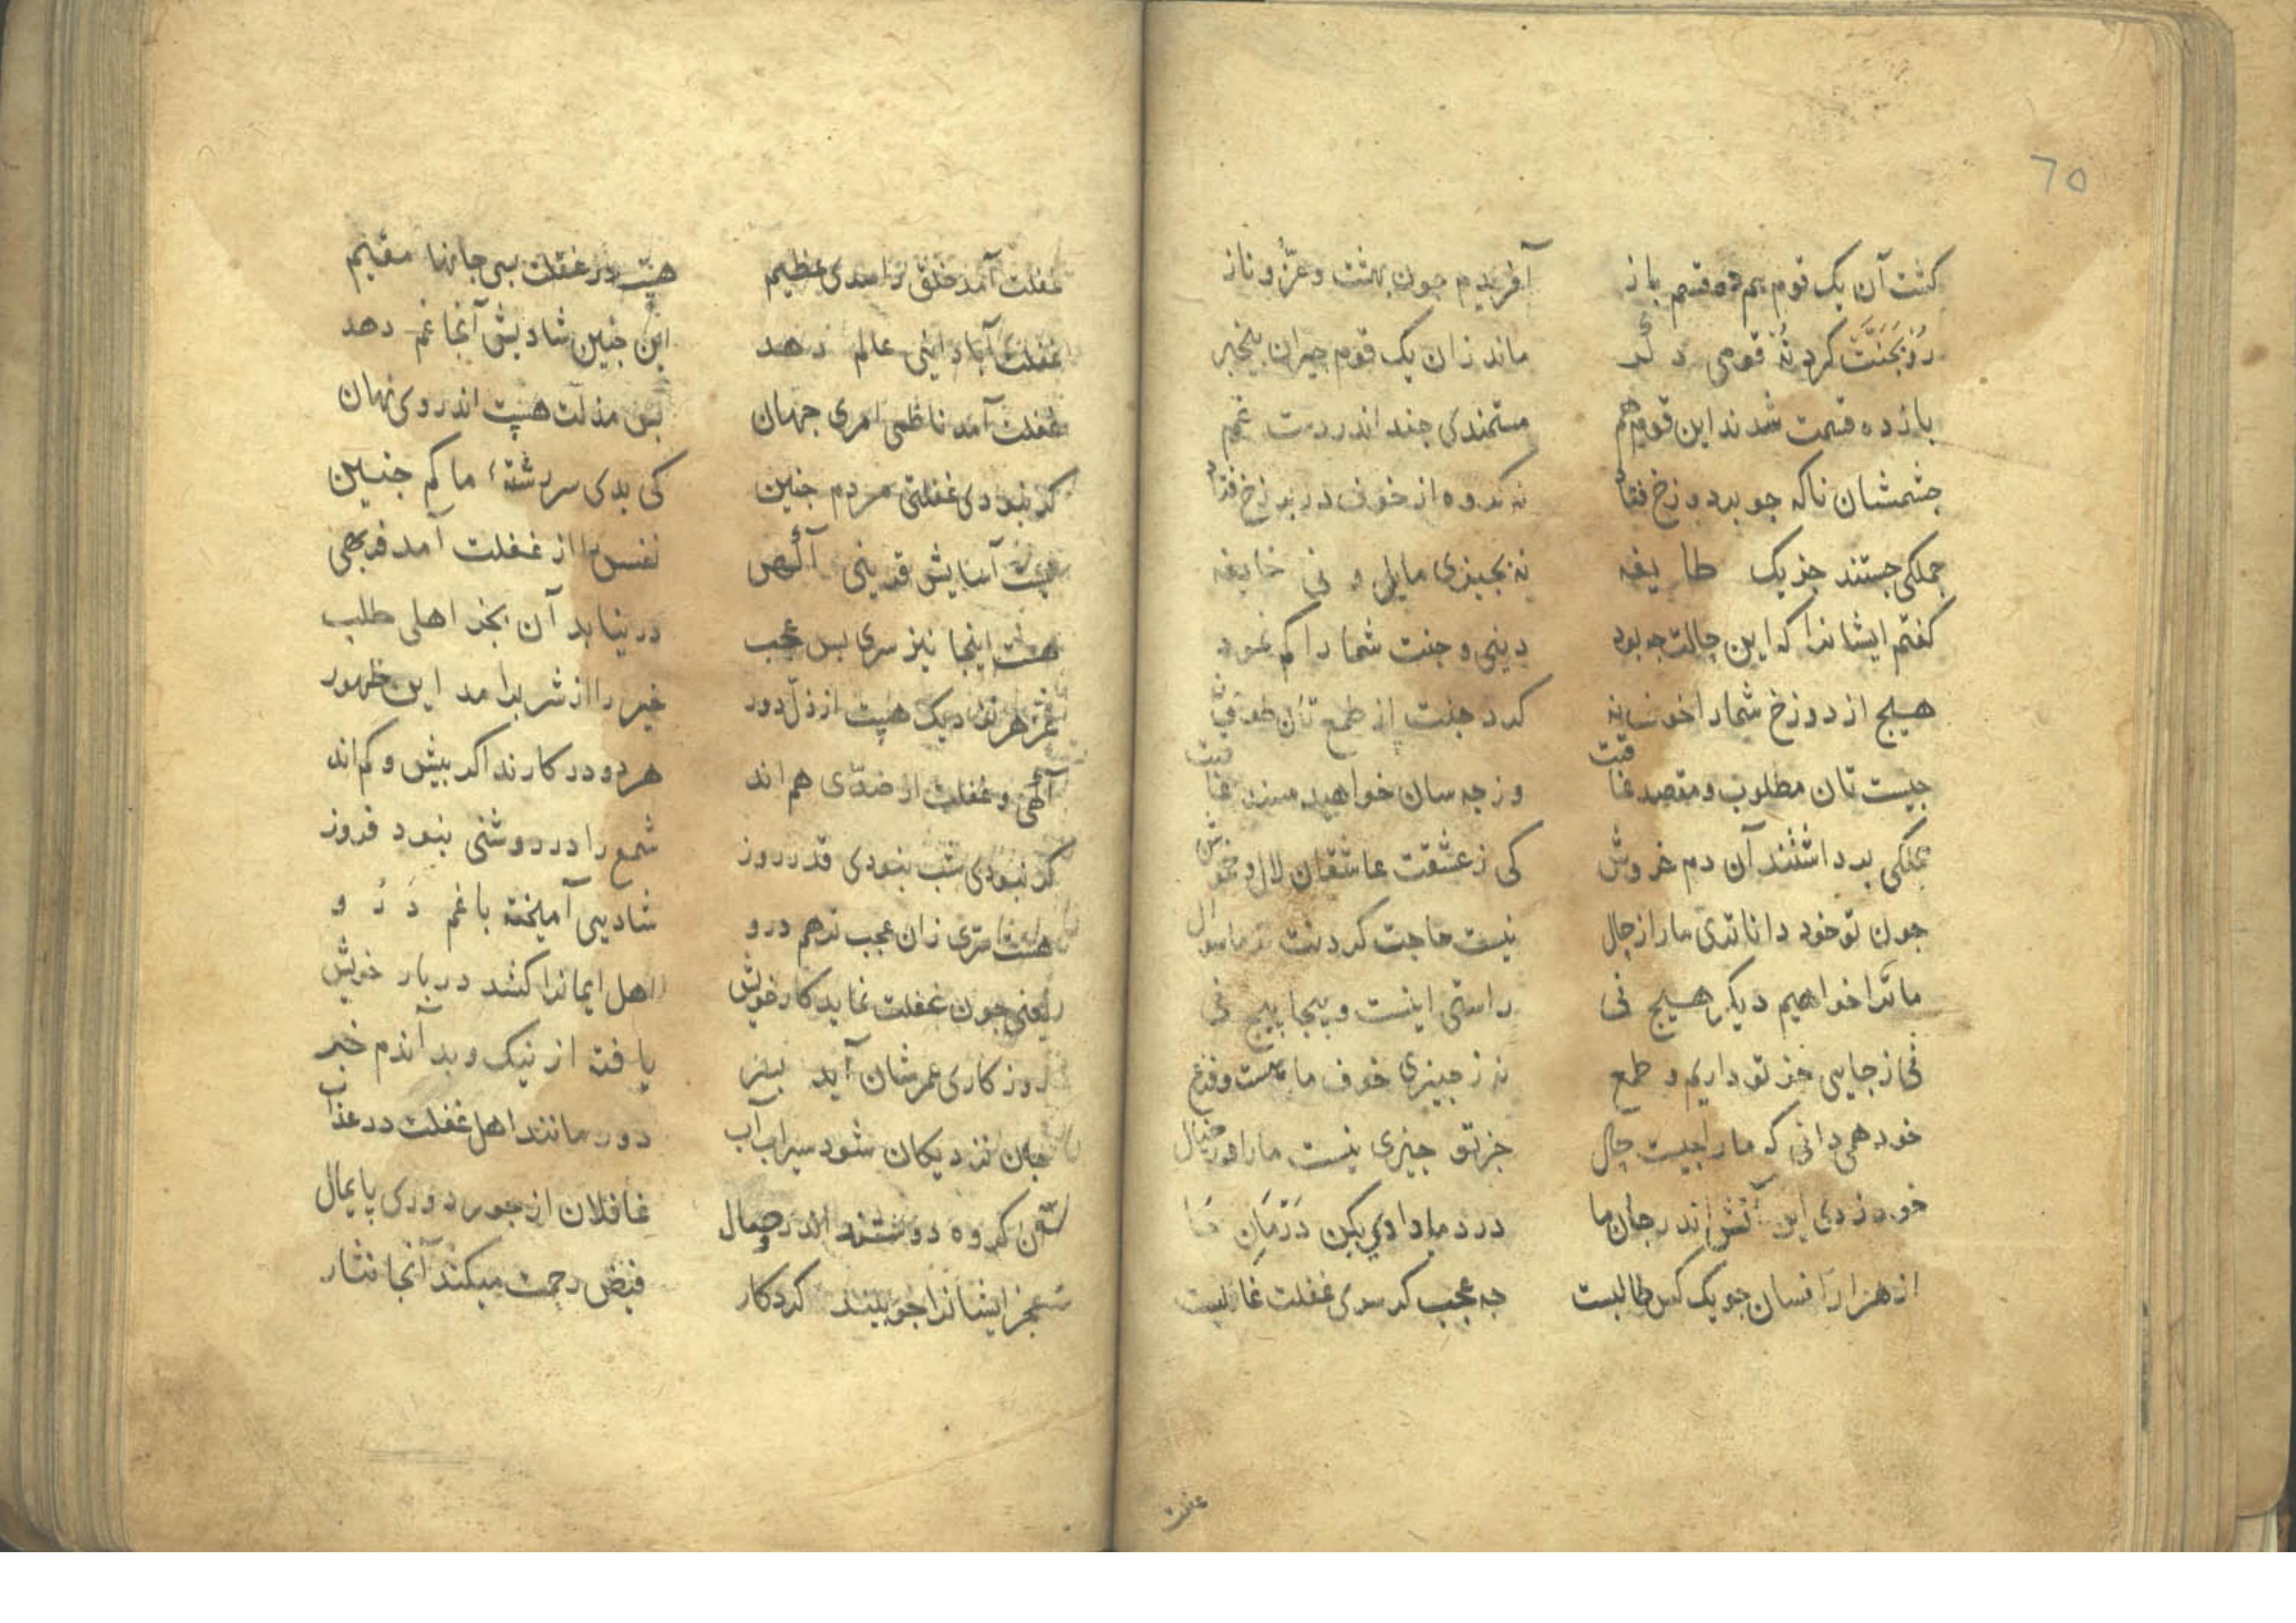 ٦٥
كشت آن یک قوم هم ده قسم باز آفریدم جون بهشت و عزّ و ناز
رو بجنّت کرد نُه قومی دگر ماند زان یک قوم حیران بیخبر
باز ده قسمت شدند این قوم هم مستمندی جند اندر دست غم
جشمشان ناکه جو بر دوزخ فتاد نه کروه از خوف در برزخ فتاد
جملکی جستند جز یک طایفه نه بجیزی مایل و نی خایفه
کفتم ایشانرا که این حالت جه بود دینی و جنت شما را کم نمود
هیج از دوزخ شما را خوف نه کرد جنت از طمع تان طوف نه
جیست تان مطلوب و مقصد عاقبت وز جه سان خواهید مسند عاقبت
جملکی برداشتند آن دم خروش کی ز عشقت عاشقان لال و خموش
جون تو خود داناتری ما را ز حال نیست حاجت کردنت از ما سوال
ما ترا خواهیم دیکر هیج نی راستی اینست و بیجا بیج نی
نی ز جایی جز تو داریم و طمع نه ز جیزی خوف ما هست و فزع
خود همی دانی که ما را جیست حال جز تو جیزی نیست ما را در خیال
خود زدی این آتش اندر جان ما درد ما را وی بکن درمان ما
از هزار افسان جو یک کس طالبست جه عجب کر سری غفلت غالبست
غفلت
غفلت آمد خلق را سدی عظیم هست در غفلت بسی جانها مقیم
غفلت آباد اینی عالم دهد این جنین شادیش آنجا غم دهد
غفلت آمد ناظمی امری جهان بس مذلت هست اندر وی نهان
کر نبودی غفلتی مردم جنین کی بدی سررشتهٔ ما کم جنین
آسایش قدرینی آکهی نفس را از غفلت آمد فربهی
هست اینجا نیز سری بس عجب در نیابد آن بجز اهلی طلب
عز هر نزدیک هست از ذلّ دور خیر را از شر برآمد این ظهور
آکهی و غفلت از ضدّی هم اند هر دو در کارند اکر بیش و کم اند
کر نبودی شب نبودی قدر روز شمع را در روشنی نبود فروز
هست سرّی زان عجب تر هم درو شادیی آمیخته با غم درو
یعنی جون غفلت نماید کار خویش اهل ایمانرا کشد در بار خویش
روزکاری عمرشان آید بسر یافته از نیک و بد آندم خبر
جان نزدیکان شود سیراب آب دور مانند اهل غفلت در عذاب
کروه دوستند اندر وصال غافلان از جور دوری پایمال
عجز ایشانرا جو بیند کردکار فیض رحمت میکند آنجا نثار